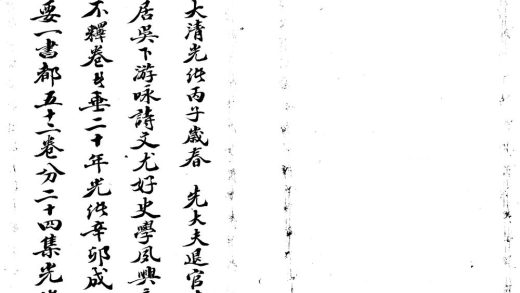 大清光緒丙子歲春 先大夫退官
居吳下游咏詩文尤好史學夙興
不釋卷者垂二十年光緒辛卯成
要一書都五十二卷分二十四集光